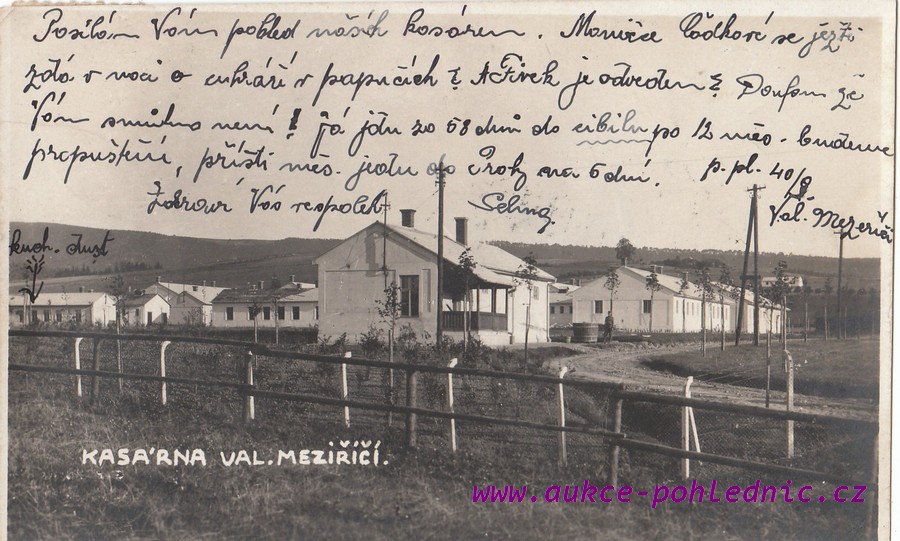 Posílám Vám pohled našich kasáren. Mařence Čádkové se ještě
zdá v noci o cukráři v papučích? A Fírek je odveden? Doufám že
Vám smutno není! Já jdu za 58 dnů do cibilu po 12 měs. budeme
propuštěni, příští měs. jedu do Prahy na 6 dní.
p. pl. 40/8
Zdraví Vás vespolek
Val. Meziříčí
kuch. důst
KASÁRNA VAL. MEZIŘÍČÍ.
www.aukce-pohlednic.cz